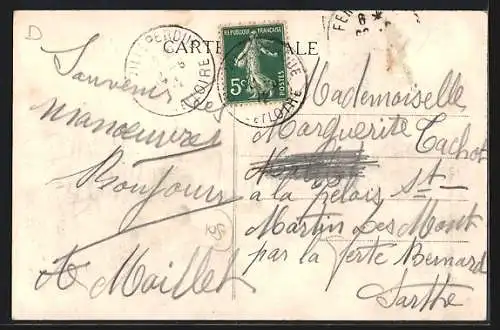 D
CARTE POSTALE
REPUBLIQUE FRANÇAISE
5c
POSTES
LOIRE
ET LOIRE
Souvenir
des
manoeuvres
Bonjour
A Maillet
Mademoiselle
Marguerite Cachot
à la St-
Martin des Mont
par la Ferté Bernard
Sarthe